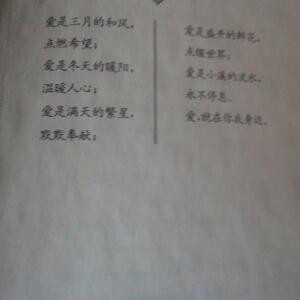 爱是三月的和风，
点燃希望；
爱是冬天的暖阳，
温暖人心；
爱是满天的繁星，
默默奉献；
爱是盛开的鲜花，
点缀世界；
爱是小溪的流水，
永不停息。
爱，就在你我身边。